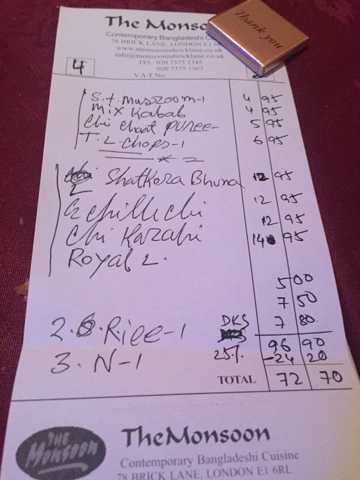 The Monsoon
Contemporary Bangladeshi Cuisine
78 BRICK LANE, LONDON E1 6RL
www.monsoonbricklane.co.uk
TEL: 020 7375 1345
020 7375 1567
V.A.T No
Thank you
4
S. t. muszoom-1 4 95
mix Kabab 4 95
Chi Chaat Puree- 5 95
T. L Chops-1 6 95
Shatkora Bhuna 12 95
12 95
Chi Karahi 12 95
Royal 2. 14 95
5 00
7 50
2. Rice-1 DKS 7 80
3. N-1 96 90
25% -24 20
TOTAL 72 70
THE MONSOON
The Monsoon
Contemporary Bangladeshi Cuisine
78 BRICK LANE, LONDON E1 6RL